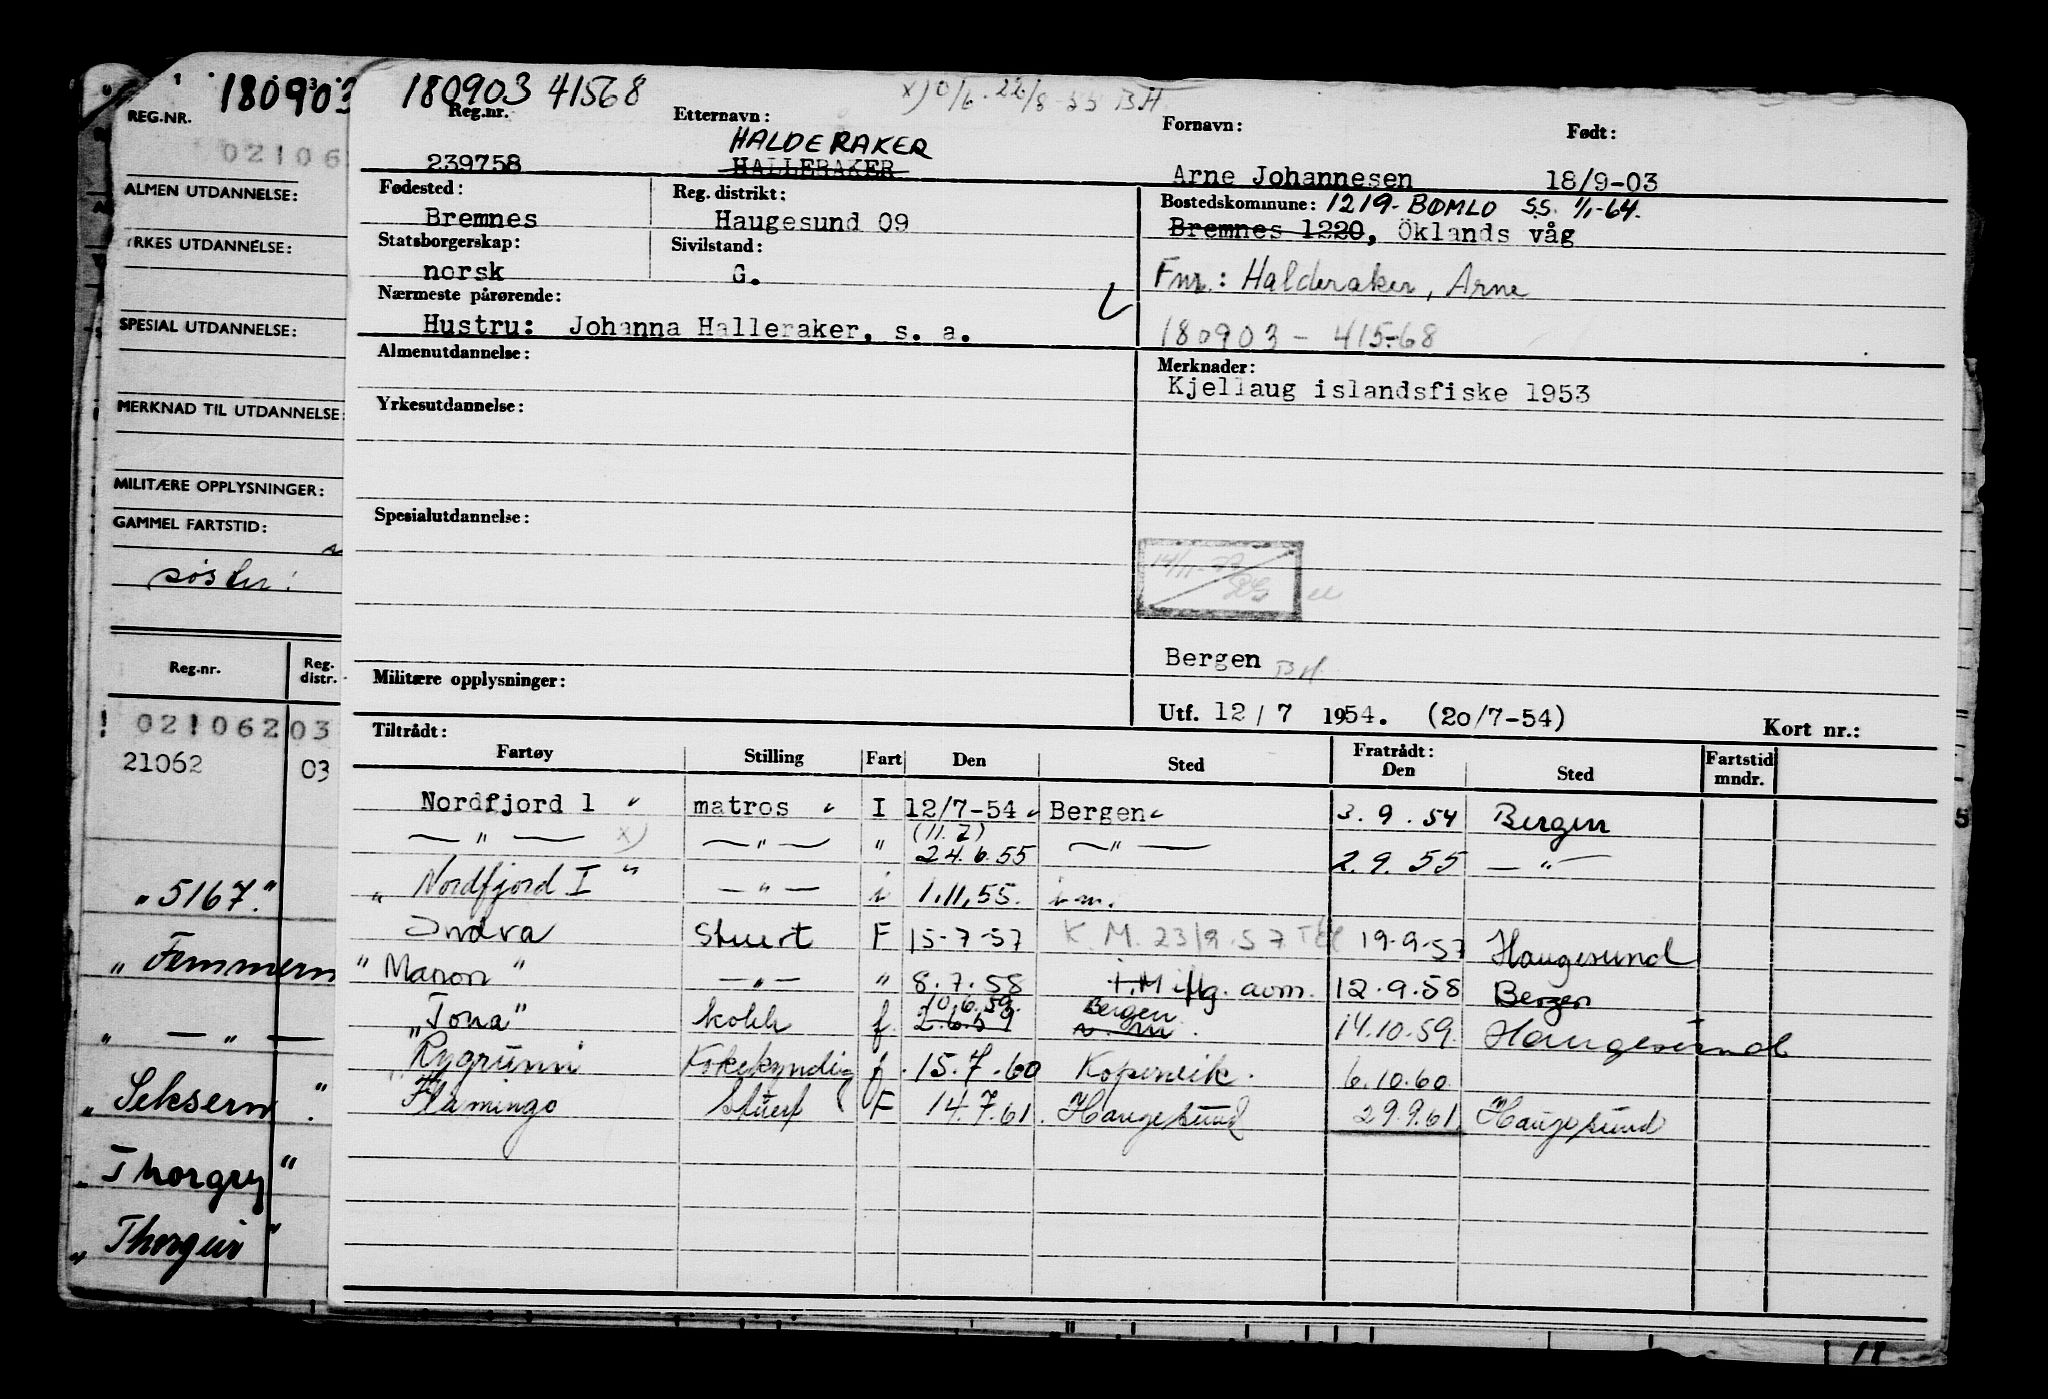 180903
REG.NR.
02106
ALMEN UTDANNELSE:
YRKES UTDANNELSE:
SPESIAL UTDANNELSE:
MERKNAD TIL UTDANNELSE:
MILITÆRE OPPLYSNINGER:
GAMMEL FARTSTID:
søsler!
Reg.nr. Reg. distr.
021062 03
21062 03
"5167."
"Femmern
" — " —
"Seksern".
"Thorgry"
"Thorgeir"
180903 41568 x) 0/6. 22/8-55 BH.
Reg.nr. Etternavn: Fornavn: Født:
HALDERAKER
239758 HALLERAKER Arne Johannesen 18/9-03
Fødested: Reg. distrikt: Bostedskommune: 1219- BØMLO SS. 1/1-64.
Bremnes Haugesund 09 Bremnes 1220, Öklands våg
Statsborgerskap: Sivilstand:
norsk G. Fnr.: Halderaker, Arne
Nærmeste pårørende:
Hustru: Johanna Halleraker, s. a. 180903 - 415-68
Almenutdannelse: Merknader:
Kjellaug islandsfiske 1953
Yrkesutdannelse:
Spesialutdannelse:
Bergen BH.
Militære opplysninger:
Utf. 12/7 1954. (20/7-54) Kort nr.:
Tiltrådt: Fratrådt:
Fartøy Stilling Fart Den Sted Den Sted Fartstid mndr.
Nordfjord 1 " matros " I 12/7-54 " Bergen " 3.9.54 Bergen
— " — x) — " — " (11.7) 24.6.55 — " — 2.9.55 — " —
" Nordfjord I " — " — i 1.11.55. i.m.
Indra Stuert F 15-7-57 K.M. 23/9.57 19-9-57 Haugesund
"Manon" — " — " 8.7.58 i.M iflg. avm. 12.9.58 Bergen
"Tona" kokk f 10.6.59. 2.6.59 Bergen 14.10.59. Haugesund
Rygrunn Kokekyndig f. 15.7.60 Kopervik. 6.10.60.
Flamingo Stuert F 14.7.61. Haugesund 29.9.61. Haugesund